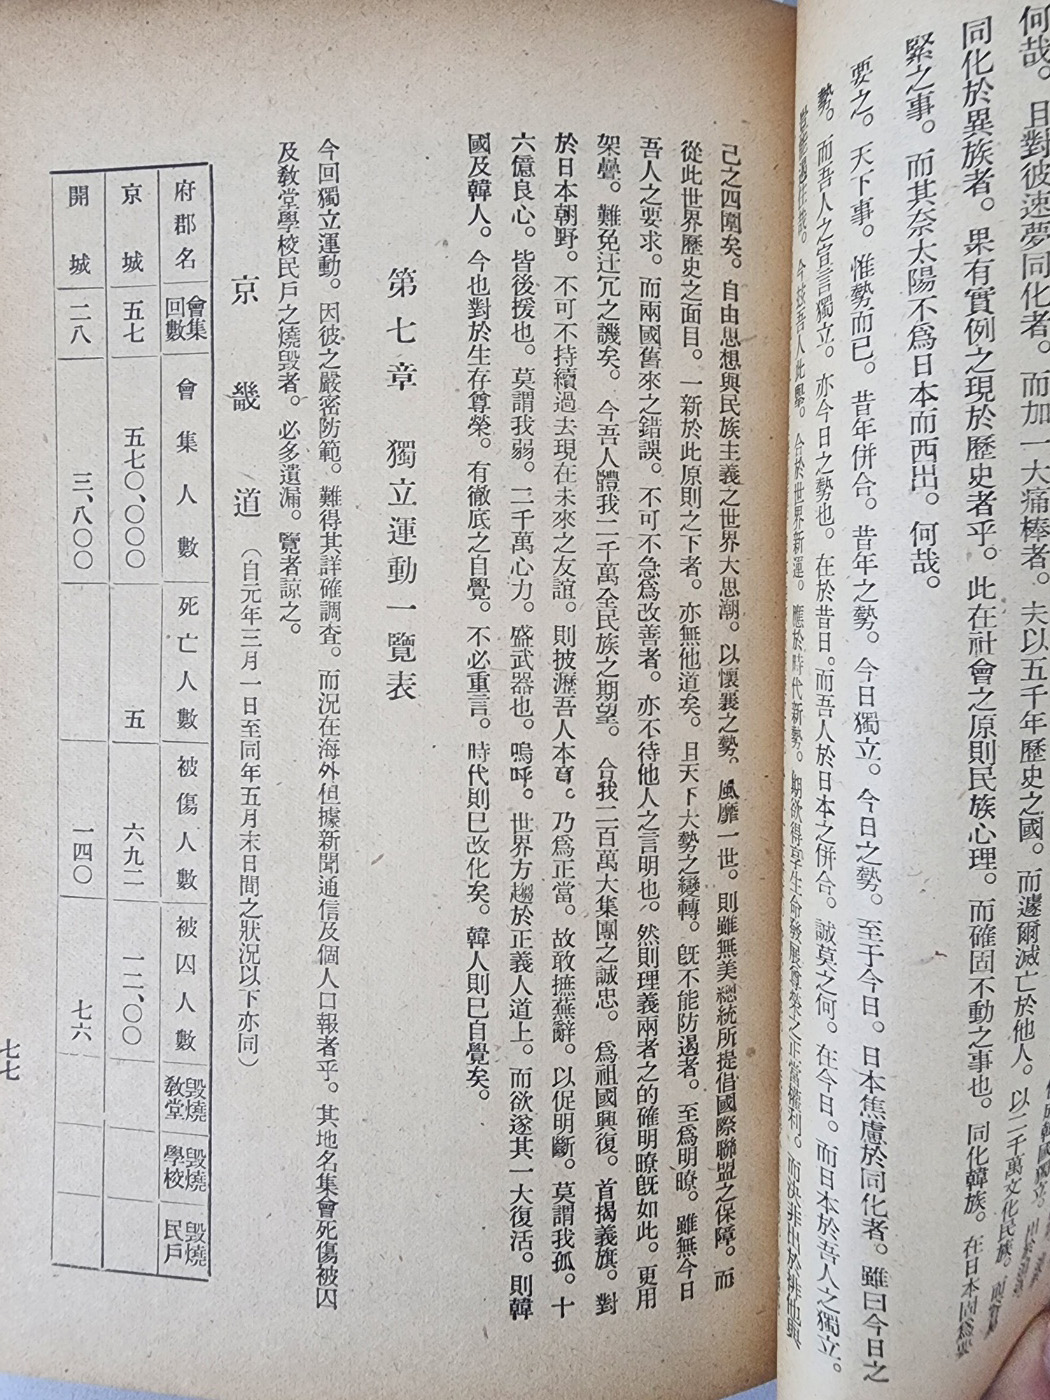 何哉。且對彼速夢同化者。而加一大痛棒者。夫以五千年歷史之國。而遽爾滅亡於他人。以二千萬文化民族。
同化於異族者。果有實例之現於歷史者乎。此在社會之原則民族心理。而確固不動之事也。同化韓族。在日本固爲
緊之事。而其奈太陽不爲日本而西出。何哉。
要之。天下事。惟勢而已。昔年併合。昔年之勢。今日獨立。今日之勢。至于今日。日本焦慮於同化者。雖曰今日之
勢。而吾人之宣言獨立。亦今日之勢也。在於昔日。而吾人於日本之併合。誠莫之何。在今日。而日本於吾人之獨立。
今玆吾人此擧。合於世界新運。應於時代新勢。期欲得享生命發展尊榮之正當權利。而決非出於排他與
己之四圍矣。自由思想與民族主義之世界大思潮。以懷襄之勢。風靡一世。則雖無美總統所提倡國際聯盟之保障。而
從此世界歷史之面目。一新於此原則之下者。亦無他道矣。且天下大勢之變轉。旣不能防遏者。至爲明瞭。雖無今日
吾人之要求。而兩國舊來之錯誤。不可不急爲改善者。亦不待他人之言明也。然則理義兩者之的確明瞭旣如此。更用
架疊。難免辻冗之譏矣。今吾人體我二千萬全民族之期望。合我二百萬大集團之誠忠。爲祖國興復。首揭義旗。對
於日本朝野。不可不持續過去現在未來之友誼。則披瀝吾人本意。乃爲正當。故敢摭蕪辭。以促明斷。莫謂我孤。十
六億良心。皆後援也。莫謂我弱。二千萬心力。盛武器也。嗚呼。世界方趨於正義人道上。而欲遂其一大復活。則韓
國及韓人。今也對於生存尊榮。有徹底之自覺。不必重言。時代則已改化矣。韓人則已自覺矣。
第七章 獨立運動一覽表
今回獨立運動。因彼之嚴密防範。難得其詳確調查。而況在海外但據新聞通信及個人口報者乎。其地名集會死傷被囚
及敎堂學校民戶之燒毁者。必多遺漏。覽者諒之。
京畿道(自元年三月一日至同年五月末日間之狀況以下亦同)
府郡名 會集回數 會集人數 死亡人數 被傷人數 被囚人數 毁燒敎堂 毁燒學校 毁燒民戶
京城 五七 五七〇、〇〇〇 五 六九二 一二、〇〇〇
開城 二八 三、八〇〇 一四〇 七六
七七